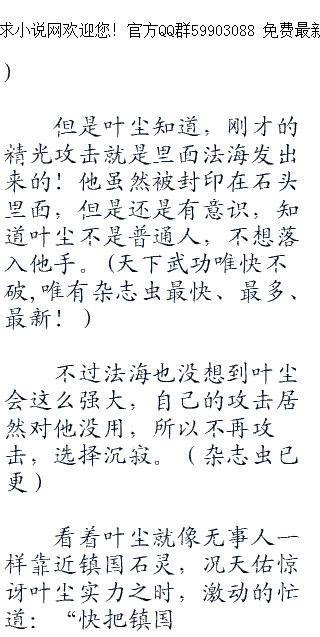 求小说网欢迎您！官方QQ群59903088 免费最新
)
但是叶尘知道，刚才的
精光攻击就是里面法海发出
来的！他虽然被封印在石头
里面，但是还是有意识，知
道叶尘不是普通人，不想落
入他手。(天下武功唯快不
破,唯有杂志虫最快、最多、
最新！)
不过法海也没想到叶尘
会这么强大，自己的攻击居
然对他没用，所以不再攻
击，选择沉寂。（杂志虫已
更）
看着叶尘就像无事人一
样靠近镇国石灵，况天佑惊
讶叶尘实力之时，激动的忙
道：“快把镇国